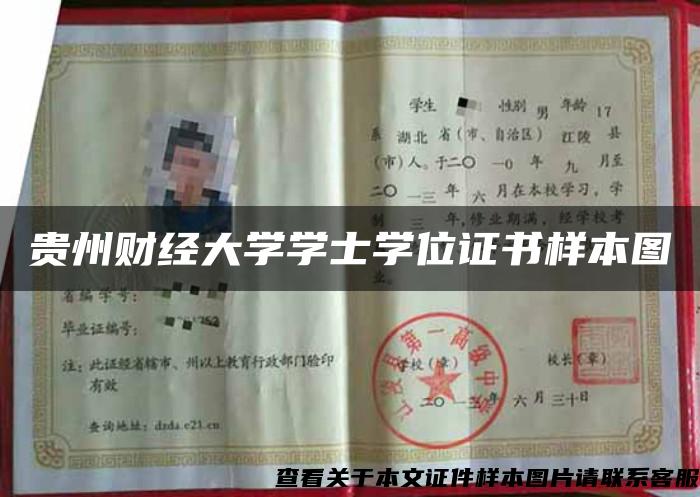 学生 性别 男 年龄 17
系 湖北 省（市、自治区）江陵 县
（市）人。于二〇一0 年 九 月至
二〇一三 年 六 月在本校学习，学
制 三 年，修业期满，经学校考
贵州财经大学学士学位证书样本图
业。
省编学号：
毕业证编号：
注：此证经省辖市、州以上教育行政部门验印
有效
查询地址：dzda.e21.cn
学校（章）
校长（章）
江陵县第一高级中学
二〇一三年 六 月 三十 日
查看关于本文证件样本图片请联系客服